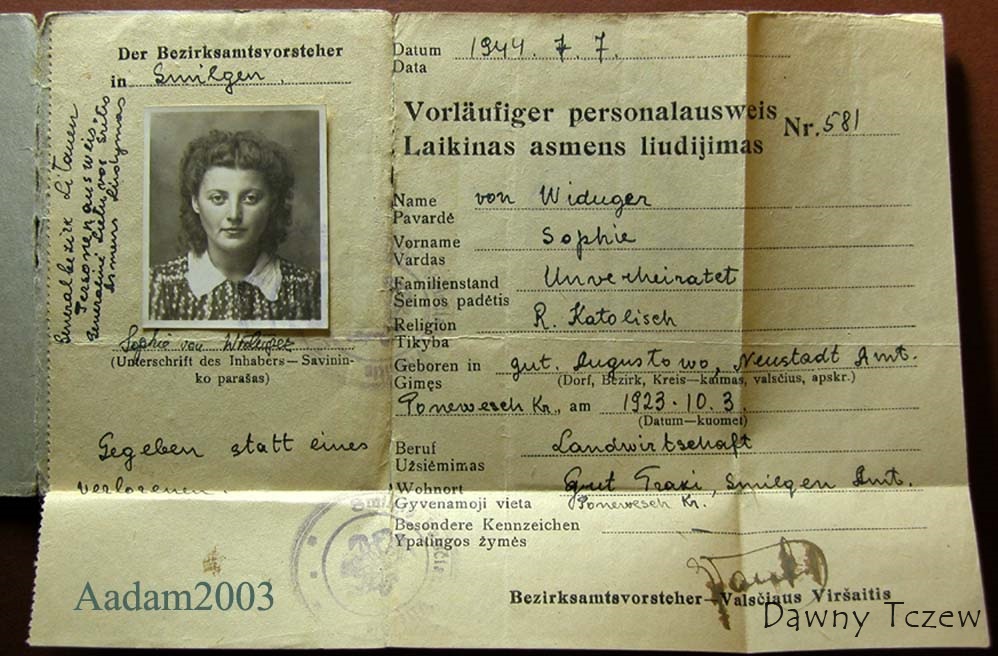 Der Bezirksamtsvorsteher
in Smilgen.
Generalbezirk Litauen
Personenausweis
Generalinė Lietuvos Sritis
Asmens liudymas
Sophie von Widuger
(Unterschrift des Inhabers—Savinin-
ko parašas)
Gegeben statt eines
verlorenen.
Aadam2003
Datum 1944. 7. 7.
Data
Vorläufiger personalausweis
Laikinas asmens liudijimas
Nr. 581
Name von Widuger
Pavardė
Vorname Sophie
Vardas
Familienstand Unverheiratet
Šeimos padėtis
Religion R. Katolisch
Tikyba
Geboren in gut. Augustowo, Neustadt Amt.
Gimęs (Dorf, Bezirk, Kreis—kaimas, valsčius, apskr.)
Ponewesch Kr., am 1923.10.3.
(Datum—kuomet)
Beruf Landwirtschaft
Užsiėmimas
Wohnort Gut Traki, Smilgen Amt.
Gyvenamoji vieta Ponewesch Kr.
Besondere Kennzeichen —
Ypatingos žymės
Bezirksamtsvorsteher—Valsčiaus Viršaitis
Dawny Tczew